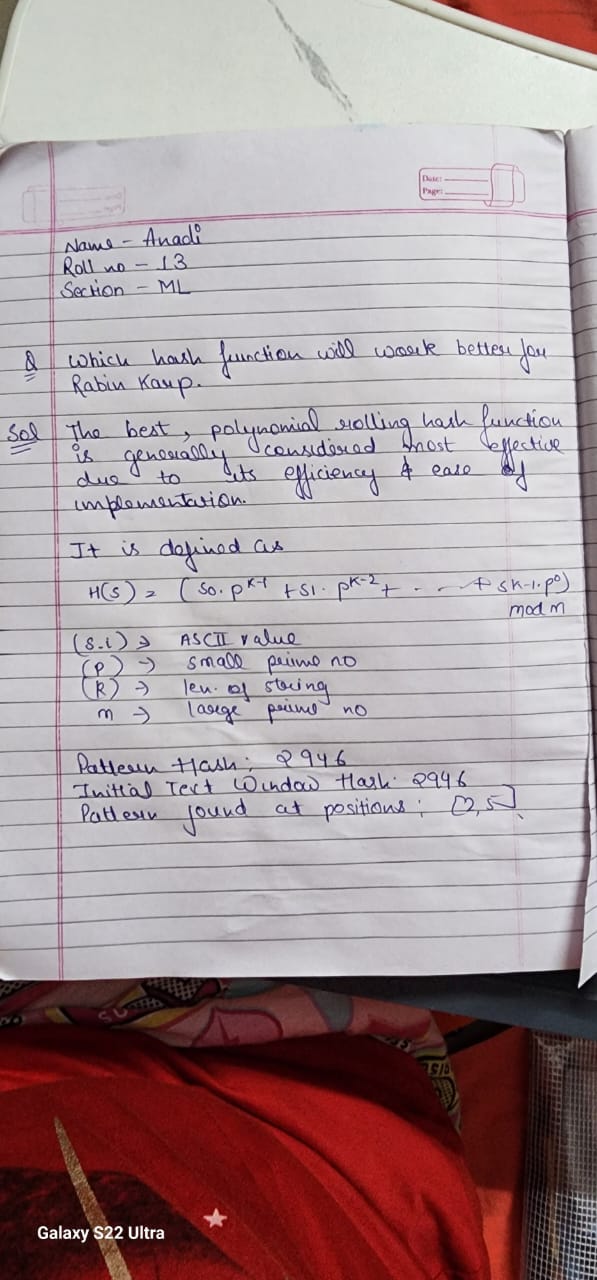 Date:
Page:
Name - Anadi
Roll no - 13
Section - ML
Q which hash function will work better for
Rabin Karp.
Sol The best, polynomial rolling hash function
is generally considered most effective
due to its efficiency & ease of
implementation.
It is defined as
H(S) = (S0.p^K-1 + S1.p^K-2 + . - . + SK-1.p^0)
mod m
(S.i) → ASCII value
(P) → small prime no
(R) → len. of string
m → large prime no
Pattern Hash: 2946
Initial Text Window Hash: 2946
Pattern found at positions: [2,5]
SU
Galaxy S22 Ultra